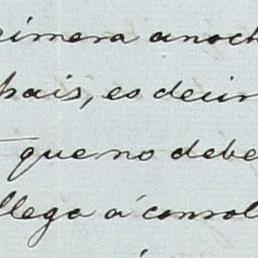 rimera anoch
pais, es decir
que no debe
llega á consol